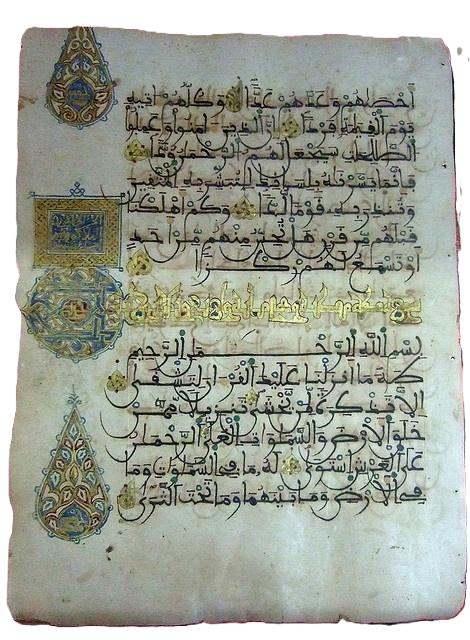 أحصىهم وعدهم عدا وكلهم اتيه
يوم القيمة فردا إن الذين امنوا وعملوا
الصلحت سيجعل لهم الرحمن ودا
فإنما يسرنه بلسانك لتبشر به المتقين
وتنذر به قوما لدا وكم أهلكنا
قبلهم من قرن هل تحس منهم من أحد
أو تسمع لهم ركزا
بسم الله الرحمن الرحيم
طه ما أنزلنا عليك القرءان لتشقى
إلا تذكرة لمن يخشى تنزيلا ممن
خلق الأرض والسموت العلى الرحمن
على العرش استوى له ما في السموت وما
في الأرض وما بينهما وما تحت الثرى